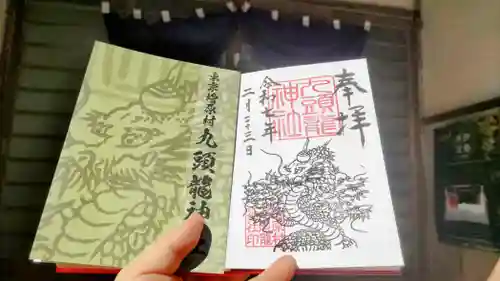 奉拝
九頭龍
神社
令和七年
二月二十三日
東京檜原村
九頭龍神